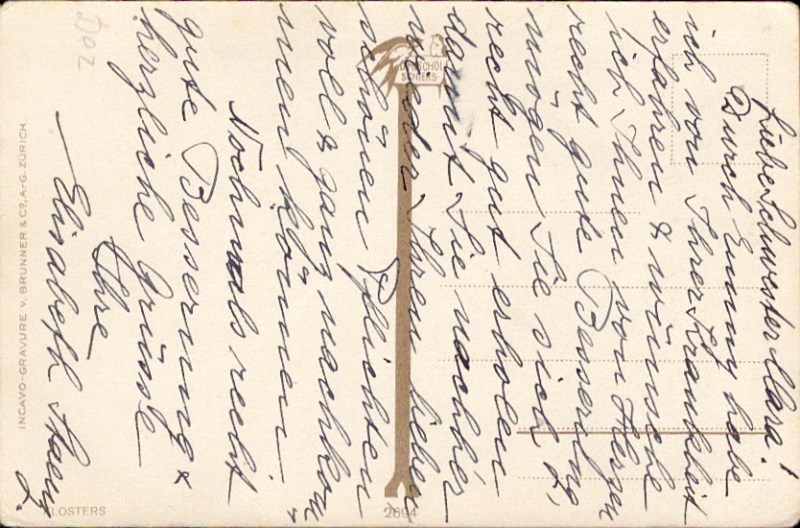 Liebe Schwester Klara!
Durch Emmy habe
ich von Ihrer Krankheit
erfahren & wünsche
ich Ihnen von Herzen
recht gute Besserung,
mögen Sie sich
recht gut erholen
damit Sie nachher
wieder Ihren lieben
schönen Pflichten
voll & ganz nachkom
men können.
Nochmals recht
gute Besserung &
herzliche Grüsse
Ihre
Elisabeth
KLOSTERS
2694
INCAVO-GRAVURE V. BRUNNER & Cº, A.-G. ZÜRICH.